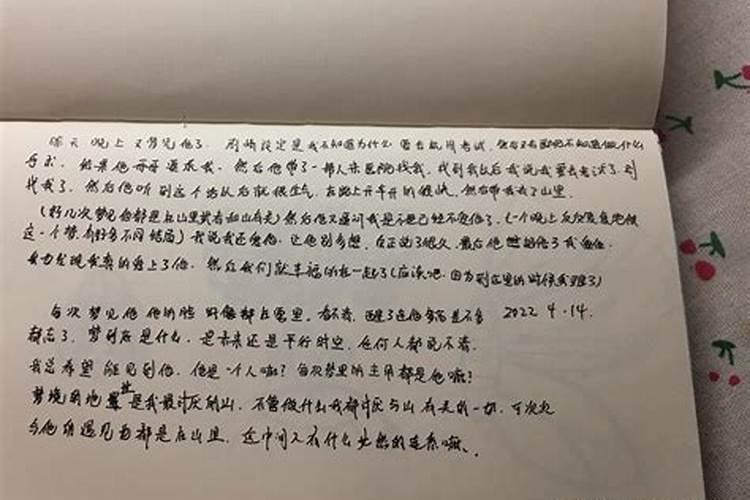 昨天晚上又梦见他了. 剧情设定是我不知道为什么要去 考试, 然后又在医院不知道做什么
手术. 结果他哥哥要求我. 然后他带了一帮人来医院找我, 找到我以后我说我要去考试了, 别
找我了. 然后他听到这个话以后就很生气, 在路上开车开的很快, 然后带我去了山里.
(好几次梦见他都是在山里或者和山有关) 然后他又逼问我是不是已经不爱他了, (一个晚上反反复复地做
这一个梦, 有好多不同结局) 我说我还爱他, 让他别多想, 在 说了很久, 最后他
发现我真的爱上了他. 然后我们就幸福的在一起了(应该吧, 因为到这里的时候我醒了)
每次梦见他他的脸好像都在雾里, 看不清, 醒了连他多高是不是 2022 4.14.
都忘了, 梦到底是什么, 是未来还是平行时空, 任何人都说不清.
我总希望能见到他, 他是一个人嘛? 每次梦里的主角都是他嘛?
梦境用地 是我最讨厌的山, 不管做什么我都讨厌与山有关的一切, 可次次
与他相遇见面都是在山里, 这中间又有什么必然的连系嘛、.